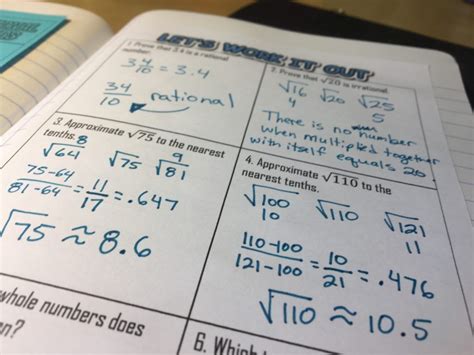 LET'S WORK IT OUT
1. Prove that 3.4 is a rational
number.
3 4/10 = 3.4
34/10 rational
2. Prove that √20 is irrational.
√16 √20 √25
4 5
There is no number
when multiplied together
with itself equals 20.
3. Approximate √75 to the nearest
tenths.
8 9
√64 √75 √81
75-64/81-64 = 11/17 = .647
√75 ≈ 8.6
4. Approximate √110 to the
nearest tenths.
√100 √110 √121
10 11
110-100/121-100 = 10/21 = .476
√110 ≈ 10.5
whole numbers does
6. Which